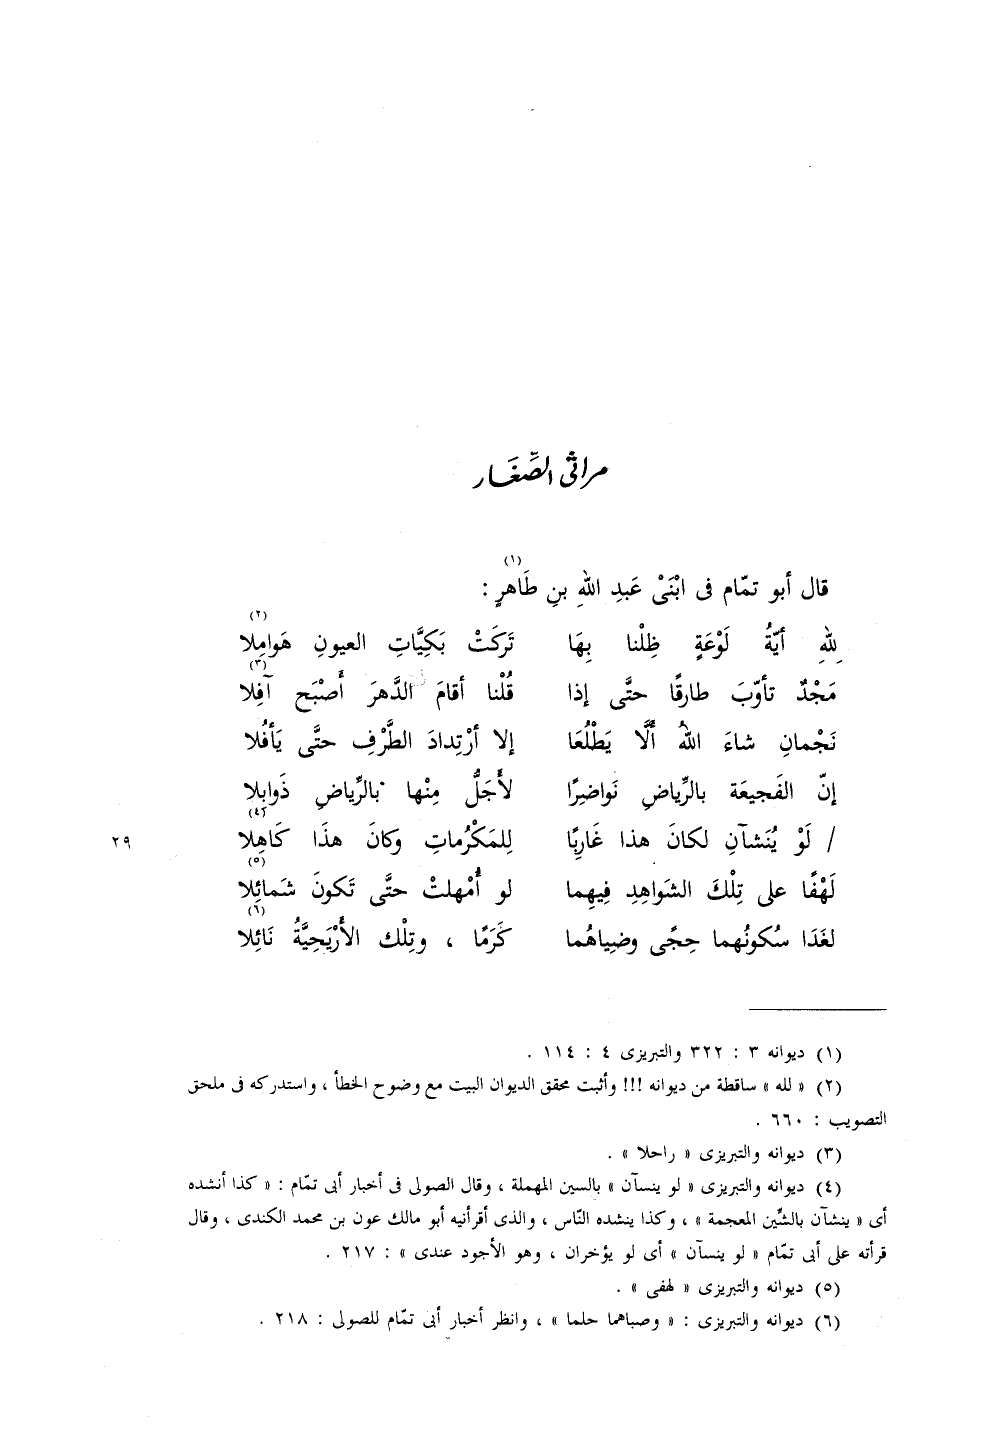 مراثى الصِّغَار
(١)
قال أبو تمّام فى ابْنَىْ عَبدِ اللهِ بنِ طَاهرٍ :
(٢)
لِلهِ أيّةُ لَوْعَةٍ ظِلْنا بِهَا تَرَكَتْ بَكِيَّاتِ العيونِ هَوامِلا
(٣)
مَجْدٌ تأوّبَ طارقًا حتَّى إذا قُلْنا أقامَ الدَّهرَ أَصْبَح آفِلا
نَجْمانِ شاءَ اللهُ ألَّا يَطْلُعَا إلا أرْتِدادَ الطَّرْفِ حتَّى يَأفُلا
إنّ الفَجيعَة بالرِّياضِ نَواضِرًا لأَجَلُّ مِنْها بالرِّياضِ ذَوابِلا
(٤)
٢٩ / لَوْ يُنَشآنِ لكانَ هذا غَارِبًا لِلمَكْرُماتِ وكانَ هذَا كَاهِلا
(٥)
لَهْفًا على تِلْكَ الشَواهِدِ فِيهِما لو أُمْهلتْ حتَّى تَكونَ شَمائِلا
(٦)
لغَدَا سُكونُهما حِجًى وضِياهُما كَرَمًا ، وتِلْك الأَرْيَحِيَّةُ نَائِلا
(١) ديوانه ٣ : ٣٢٢ والتبريزى ٤ : ١١٤ .
(٢) « لله » ساقطة من ديوانه !!! وأثبت محقق الديوان البيت مع وضوح الخطأ ، واستدركه فى ملحق
التصويب : ٦٦٠ .
(٣) ديوانه والتبريزى « راحلا » .
(٤) ديوانه والتبريزى « لو ينسآن » بالسين المهملة ، وقال الصولى فى أخبار أبى تمّام : « كذا أنشده
أى « ينشآن بالشّين المعجمة » ، وكذا ينشده النّاس ، والذى أقرأنيه أبو مالك عون بن محمد الكندى ، وقال
قرأته على أبى تمّام « لو ينسآن » أى لو يؤخران ، وهو الأجود عندى » : ٢١٧ .
(٥) ديوانه والتبريزى « لهفى » .
(٦) ديوانه والتبريزى : « وصباهما حلما » ، وانظر أخبار أبى تمّام للصولى : ٢١٨ .